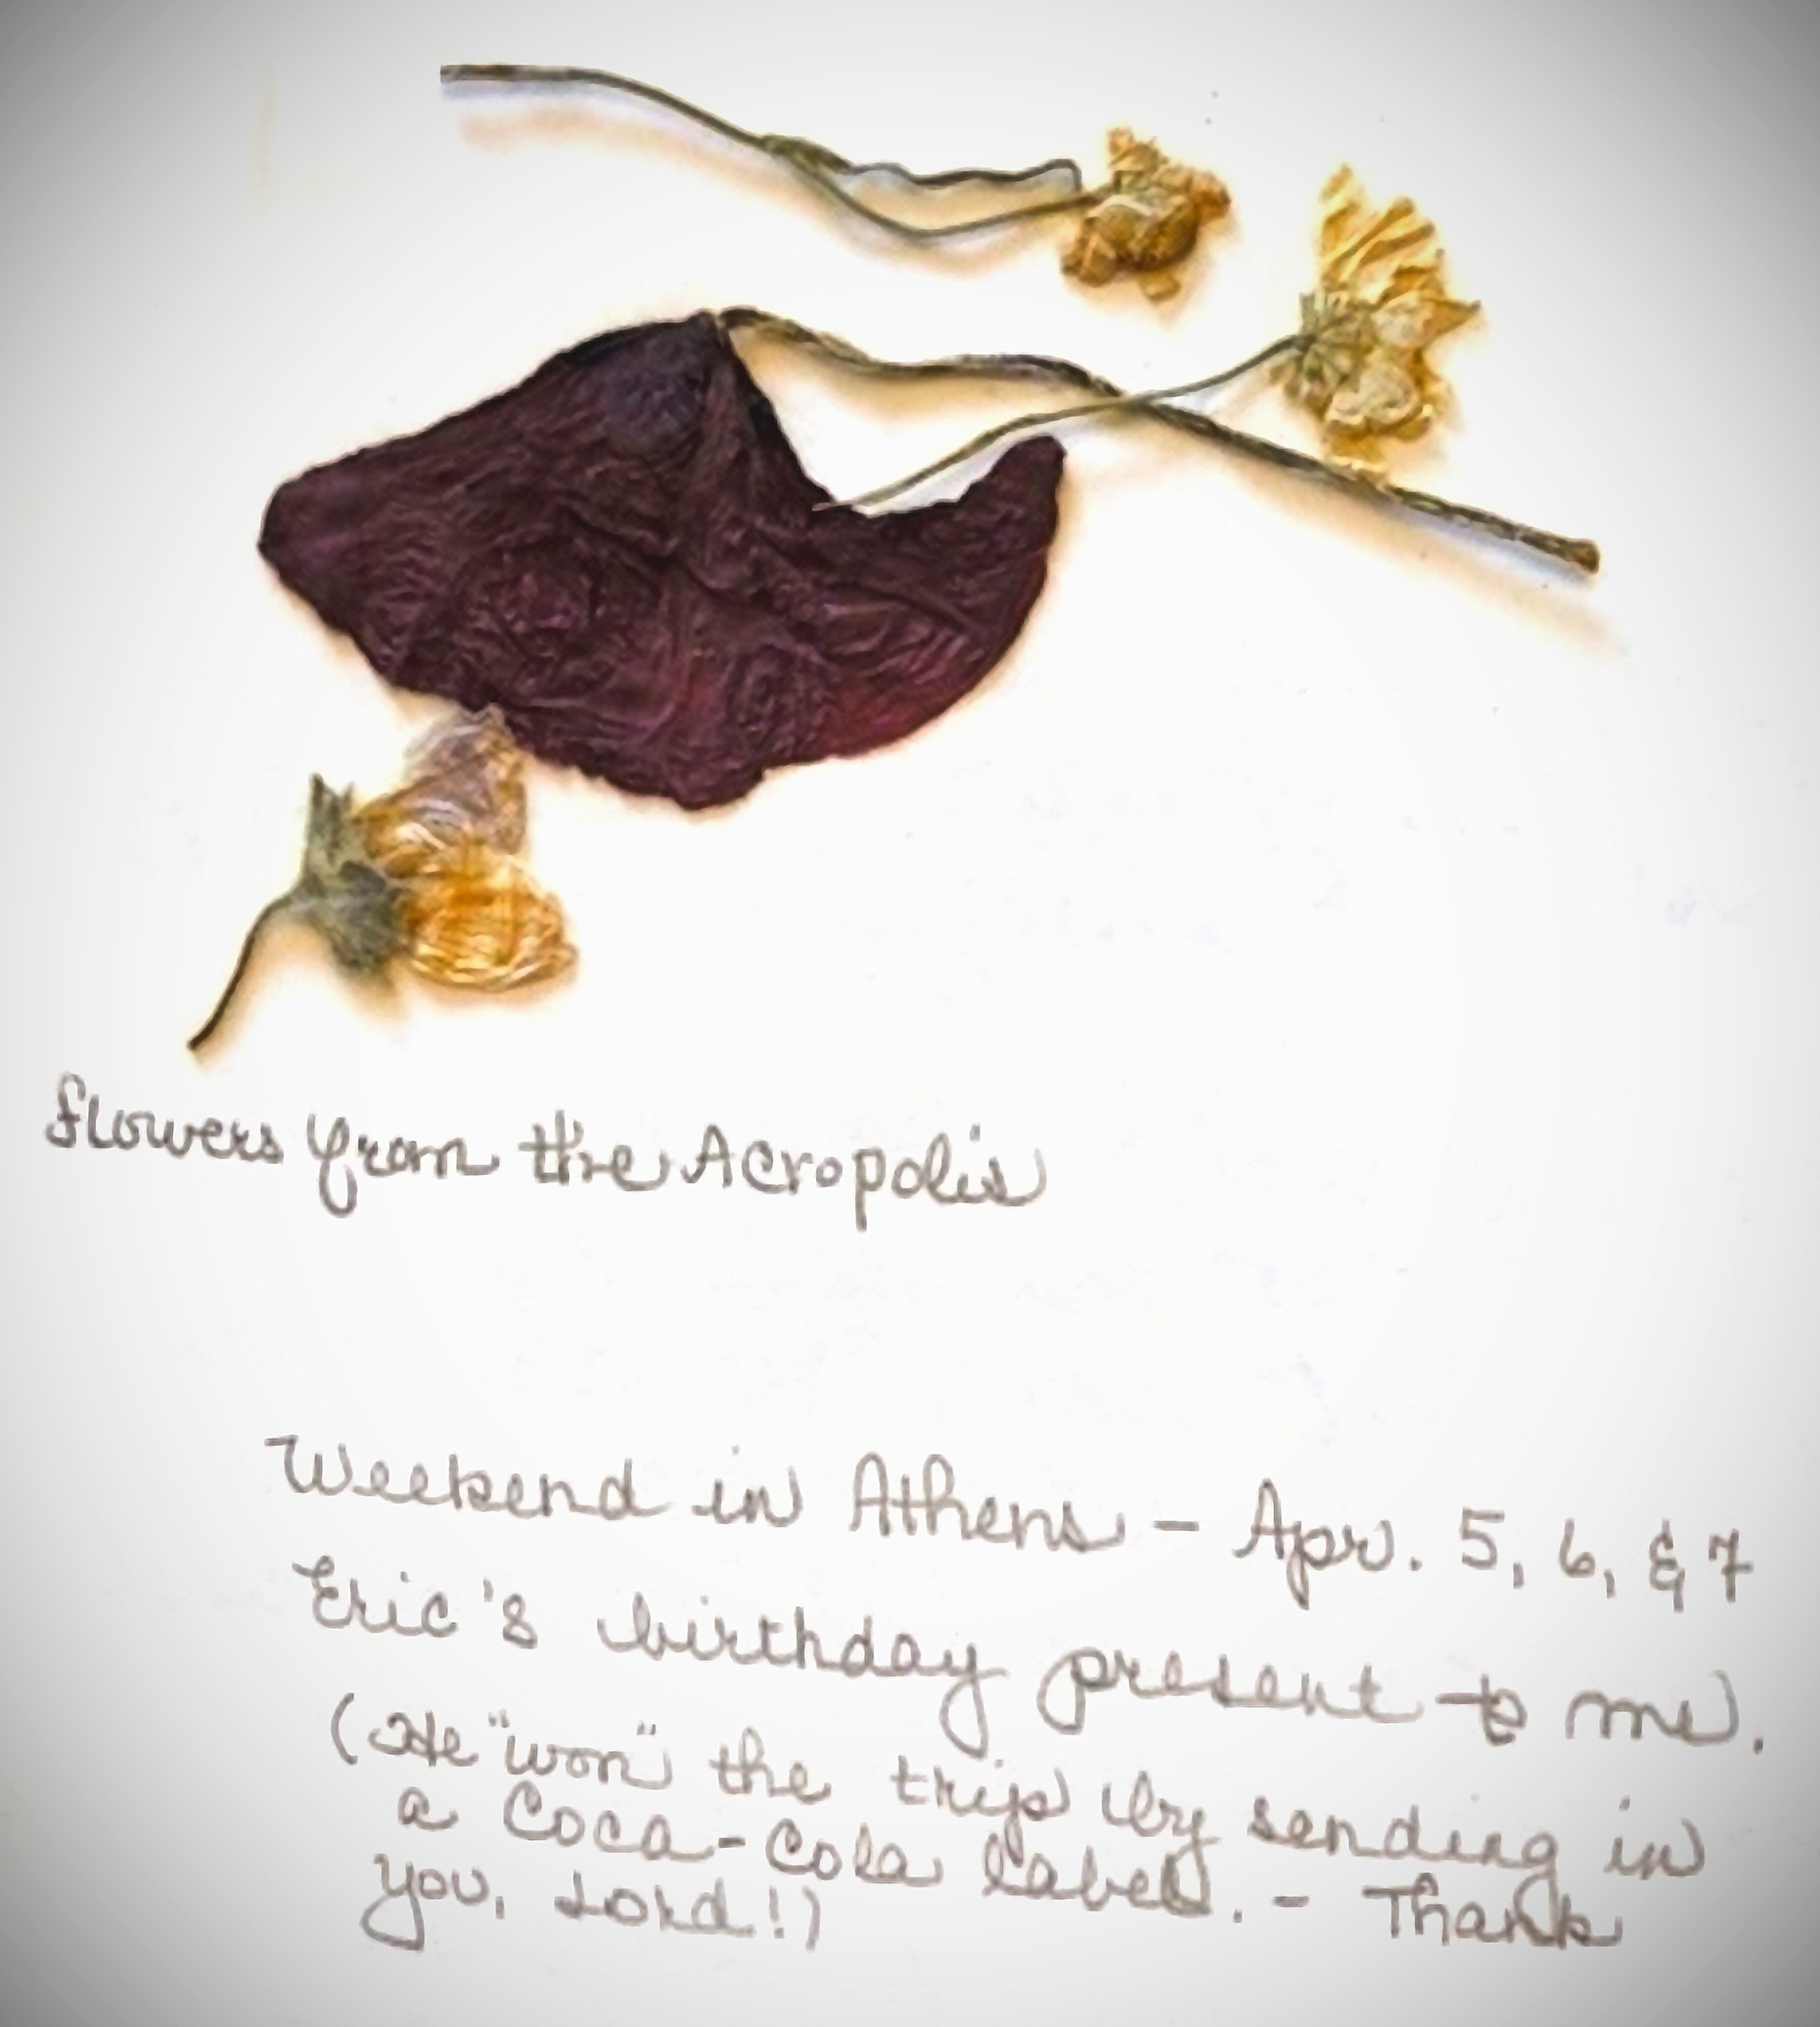 flowers from the Acropolis
Weekend in Athens - Apr. 5, 6, & 7
Eric's birthday present to me.
(He "won" the trip by sending in
a Coca-Cola label. - Thank
you, Lord!)